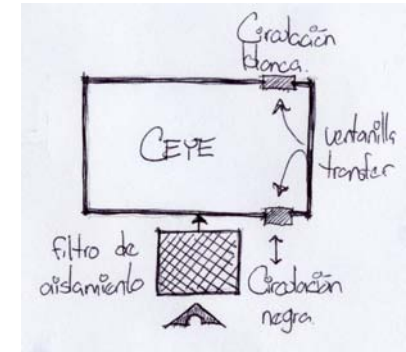 Circulación
blanca.
CEYE
ventanilla
transfer
filtro de
aislamiento
Circulación
negra.